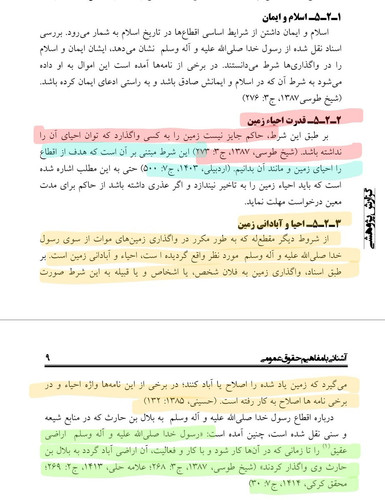 ۱ـ۲ـ۵ـ اسلام و ایمان
اسلام و ایمان داشتن از شرایط اساسی اقطاع‌ها در تاریخ اسلام به شمار می‌رود. بررسی
اسناد نقل شده از رسول خدا صلی‌الله علیه و آله وسلم نشان می‌دهد، ایشان ایمان و اسلام
را در واگذاری‌ها شرط می‌دانستند. در برخی از نامه‌ها آمده است این اموال به او داده
می‌شود به شرط آن که در اسلام و ایمانش صادق باشد و به راستی ادعای ایمان کرده باشد.
(شیخ طوسی،۱۳۸۷، ج۳: ۲۷۶)
۲ـ۲ـ۵ـ قدرت احیاء زمین
بر طبق این شرط، حاکم جایز نیست زمین را به کسی واگذارد که توان احیای آن را
نداشته باشد. (شیخ طوسی، ۱۳۸۷، ج۳: ۲۷۳) این شرط مبتنی بر آن است که هدف از اقطاع
را احیای زمین و مانند آن بدانیم. (اردبیلی، ۱۴۰۳، ج۷: ۵۰۰) حتی به این مطلب اشاره شده
است که باید احیاء زمین را به تاخیر نیندازد و اگر عذری داشته باشد از حاکم برای مدت
معین درخواست مهلت نماید.
۳ـ۲ـ۵ـ احیا و آبادانی زمین
از شروط دیگر مقطع‌له که به طور مکرر در واگذاری زمین‌های موات از سوی رسول
خدا صلی‌الله علیه و آله وسلم مورد نظر واقع گردیده است، احیاء و آبادانی زمین است. بر
طبق اسناد، واگذاری زمین به فلان شخص، یا اشخاص و یا قبیله به این شرط صورت
گزارش پژوهشی
آشنائی با مفاهیم حقوق عمومی ۹
می‌گیرد که زمین یاد شده را اصلاح یا آباد کنند؛ در برخی از این نامه‌ها واژه احیاء و در
برخی نامه ها اصلاح به کار رفته است. (حسینی، ۱۳۸۵: ۱۳۲)
درباره اقطاع رسول خدا صلی‌الله علیه و آله وسلم به بلال بن حارث که در منابع شیعه
و سنی نقل شده است، چنین آمده است: «رسول خدا صلی‌الله علیه و آله وسلم اراضی
عقیق(۱) را تا زمانی که در آن‌ها کار شود و با کار و فعالیت، آن اراضی آباد گردد به بلال بن
حارث وی واگذار کردند» (شیخ طوسی، ۱۳۸۷، ج۳: ۲۶۸؛ علامه حلی، ۱۴۱۳، ج۲: ۲۶۹؛
محقق کرکی، ۱۴۱۴، ج۷: ۳۰)